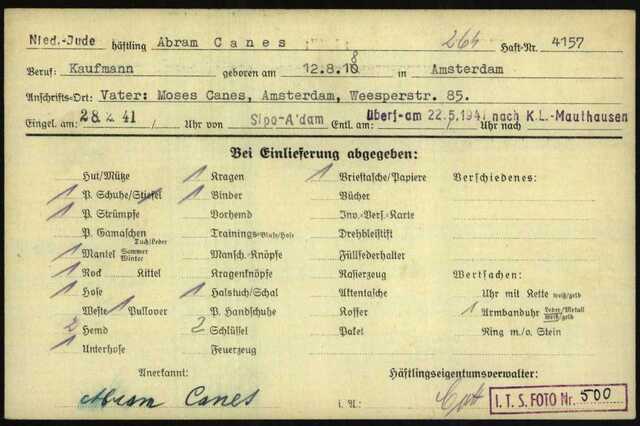 Nied.-Jude häftling Abram Canes 264 Haft-Nr. 4157
Beruf: Kaufmann geboren am 12.8.18 in Amsterdam
Anschrifts-Ort: Vater: Moses Canes, Amsterdam, Weesperstr. 85.
Eingel. am 28 2. 41 Uhr von Sipo-A'dam Entl. am Überf. am 22.5.1941 nach K.L.-Mauthausen Uhr nach
Bei Einlieferung abgegeben:
Hut/Mütze 1 Kragen 1 Brieftasche/Papiere Verschiedenes:
1 P. Schuhe/Stiefel 1 Binder Bücher
1 P. Strümpfe Vorhemd Inv.-Vers.-Karte
P. Gamaschen Tuch/Leder Trainings-Bluse/Hose Drehbleistift
1 Mantel Sommer Winter Mansch.-Knöpfe Füllfederhalter
1 Rock Kittel Kragenknöpfe Rasierzeug Wertsachen:
1 Hose 1 Halstuch/Schal Aktentasche Uhr mit Kette weiß/gelb
Weste 1 Pullover P. Handschuhe Koffer 1 Armbanduhr Leder/Metall weiß/gelb
2 Hemd 2 Schlüssel Paket Ring m./o. Stein
1 Unterhose Feuerzeug
Anerkannt: Häftlingseigentumsverwalter:
Abram Canes i. A.:
I.T.S. FOTO Nr. 500